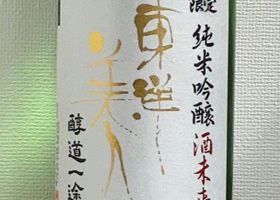 限定 純米吟醸 酒未来
東洋美人
醇道一途